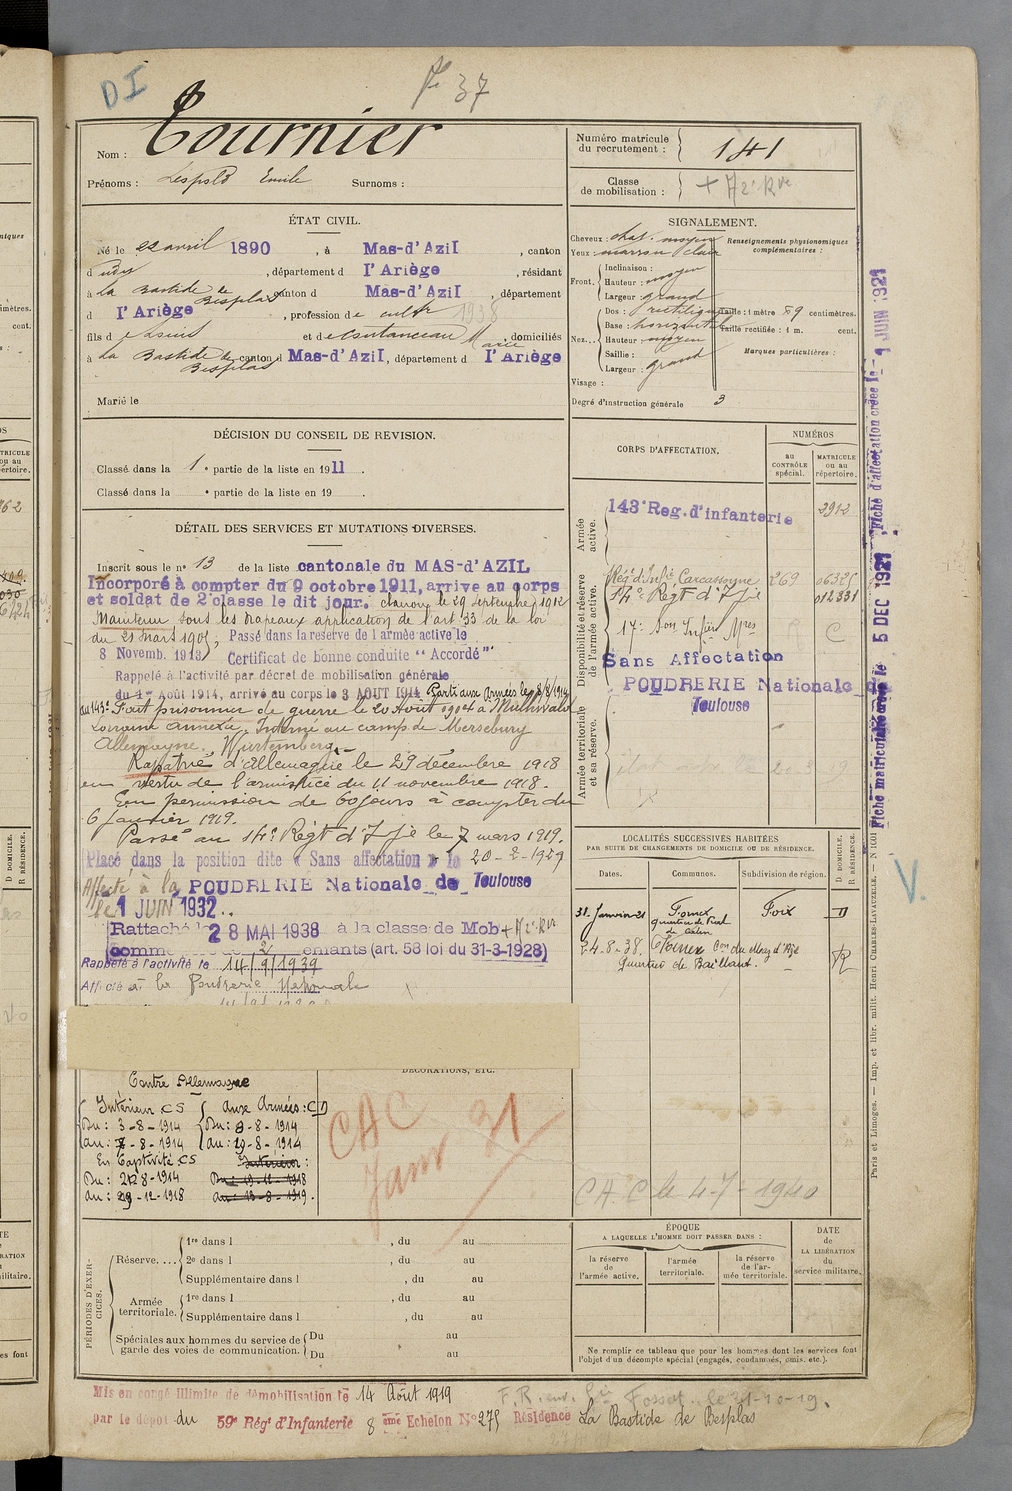 DI
37
Nom : Tournier
Prénoms : Léopold Emile Surnoms :
Numéro matricule
du recrutement : 141
Classe
de mobilisation : + 
ÉTAT CIVIL.
Né le 22 avril 1890, à Mas-d'Azil, canton
d udit, département d l'Ariège, résidant
à La Bastide de Besplas canton d Mas-d'Azil, département
d l'Ariège, profession de cultr 1938
fils d et de Constanceau Marie, domiciliés
à La Bastide de Besplas canton d Mas-d'Azil, département d l'Ariège
Marié le
SIGNALEMENT.
Cheveux : chat. moyen
Yeux marron clair
Front. Inclinaison : moyen
Hauteur :
Largeur : grand
Nez... Dos : rectiligne
Base : horizontal
Hauteur : moyen
Saillie :
Largeur : grand
Visage :
Degré d'instruction générale 3
Renseignements physionomiques
complémentaires :
Taille : 1 mètre 59 centimètres.
Taille rectifiée : 1 m. cent.
Marques particulières :
DÉCISION DU CONSEIL DE REVISION.
Classé dans la 1e partie de la liste en 1911.
Classé dans la e partie de la liste en 19 .
DÉTAIL DES SERVICES ET MUTATIONS DIVERSES.
Inscrit sous le no 13 de la liste cantonale du MAS-d'AZIL
Incorporé à compter du 9 octobre 1911, arrive au corps
et soldat de 2e classe le dit jour. 29 septembre 1912
Maintenu sous les drapeaux application de l'art 33 de la loi
du 21 mars 1905, Passé dans la reserve de l'armée active le
8 Novemb. 1913, Certificat de bonne conduite "Accordé"
Rappelé à l'activité par décret de mobilisation générale
du 1er Août 1914, arrivé au corps le 3 AOUT 1914 Parti aux Armées le 8/8/1914
au 143e Fait prisonnier de guerre le 20 Aout 1914 à
Lorraine annexée. Interné au camp de Mersebury
Allemagne. Wurtemberg.
Rapatrié d'Allemagne le 29 décembre 1918
en vertu de l'armistice du 11 novembre 1918.
En permission de 60 jours à compter du
6 janvier 1919.
Passé au 14e Régt d'Ije le 7 mars 1919.
Placé dans la position dite « Sans affectation » le 20-2-1929
Affecté à la POUDRERIE Nationale de Toulouse
le 1 JUIN 1932..
Rattaché le 28 MAI 1938 à la classe de Mob
comme 2 enfants (art. 58 loi du 31-3-1928)
Rappelé à l'activité le 14/9/1939
Affecté à la Poudrerie Nationale
CORPS D'AFFECTATION.
NUMÉROS
au
CONTRÔLE
spécial.
MATRICULE
ou au
répertoire.
Armée
active.
143e Reg. d'infanterie
2912
Disponibilité et réserve
de l'armée active.
Rég. d'Infie Carcassonne 269 0632
14e Regt d'Ije 012331
17e Son Infirs Mres C
Sans Affectation
POUDRERIE Nationale de
Toulouse
Armée territoriale
et sa réserve.
LOCALITÉS SUCCESSIVES HABITÉES
PAR SUITE DE CHANGEMENTS DE DOMICILE OU DE RÉSIDENCE.
Dates.
Communes.
Subdivision de région.
D DOMICILE.
R RÉSIDENCE.
31 Janvier 21 Fornex Foix D
24-8-38. Fornex Con du Maz d'Azil R
Quartier de Baillant.
Contre Allemagne
DÉCORATIONS, ETC.
Intérieur CS
Du : 3-8-1914
au : 7-8-1914
Aux Armées : CD
Du : 8-8-1914
au : 20-8-1914
En Captivité CS
Du : 21-8-1914
au : 29-12-1918
Intérieur :
CAC
Janv 31
CA.C le 4-7-1940
PÉRIODES D'EXERCICES.
Réserve....
1re dans l , du au
2e dans l , du au
Supplémentaire dans l , du au
Armée
territoriale.
1re dans l , du au
Supplémentaire dans l , du au
Spéciales aux hommes du service de
garde des voies de communication.
Du au
Du au
ÉPOQUE
A LAQUELLE L'HOMME DOIT PASSER DANS :
la réserve
de
l'armée active.
l'armée
territoriale.
la réserve
de l'ar-
mée territoriale.
DATE
de
LA LIBÉRATION
du
service militaire.
Ne remplir ce tableau que pour les hommes dont les services font
l'objet d'un décompte spécial (engagés, condamnés, omis, etc.).
Mis en congé illimité de démobilisation le 14 Août 1919
par le dépôt du 59e Rég. d'Infanterie 8 ème Echelon No 275 Résidence La Bastide de Besplas
Fossat le 31-10-19.
Fiche matriculaire créée le 5 DEC 1921 Fiche d'affectation créée le 1 JUIN 1921
V.
Paris et Limoges. — Imp. et libr. milit. Henri CHARLES-LAVAUZELLE.